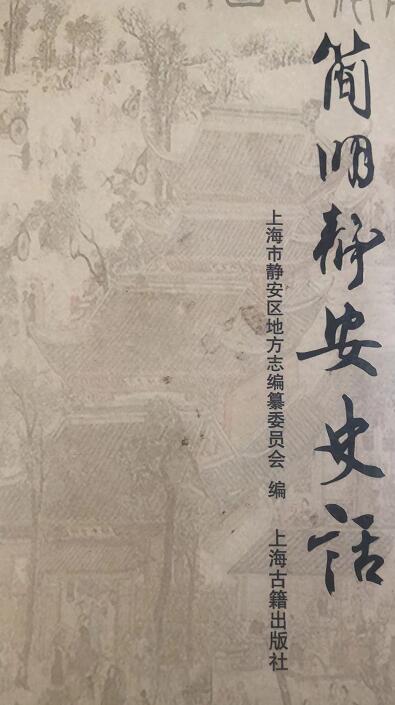 简明静安史话
上海市静安区地方志编纂委员会 编
上海古籍出版社